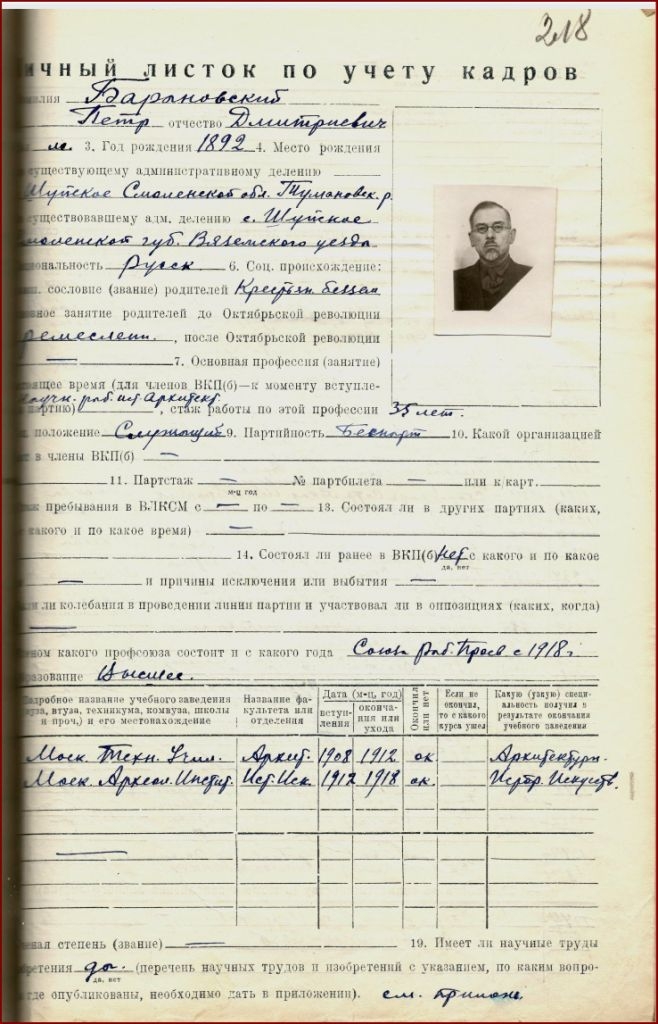 218
ичный листок по учету кадров
милия Барановский
Петр отчество Дмитриевич
м. 3. Год рождения 1892 4. Место рождения
существующему административному делению
Шуйское Смоленской обл. Тумановск. р.
существовавшему адм. делению с. Шуйское
моленской губ. Вяземского уезда
иональность русск. 6. Соц. происхождение:
сословие (звание) родителей Крестьян. беззем
вное занятие родителей до Октябрьской революции
ремеслен., после Октябрьской революции
— 7. Основная профессия (занятие)
тоящее время (для членов ВКП(б)—к моменту вступле-
научн. раб. ист. Архитект.
партию), стаж работы по этой профессии 35 лет.
положение Служащий 9. Партийность Беспарт 10. Какой организацией
т в члены ВКП(б) —
11. Партстаж — № партбилета — или к/карт.
м-ц год
ж пребывания в ВЛКСМ с — по — 13. Состоял ли в других партиях (каких,
какого и по какое время) —
14. Состоял ли ранее в ВКП(б) нет с какого и по какое
да, нет
— и причины исключения или выбытия —
ли ли колебания в проведении линии партии и участвовал ли в оппозициях (каких, когда)
—
ном какого профсоюза состоит и с какого года Союза раб. Прос с 1918 г
разование Высшее.
одробное название учебного заведения (вуза, втуза, техникума, комвуза, школы и проч.) и его местонахождение Название факультета или отделения Дата (м-ц, год) вступления окончания или ухода Окончил или нет Если не окончил, то с какого курса ушел Какую (узкую) специальность получил в результате окончания учебного заведения
Моск. Техн. Учил. Архит. 1908 1912 ок Архитектурн.
Моск. Археол. Инстит. Ист. Иск. 1912 1918 ок. Истор. Искусств.
—
еная степень (звание) — 19. Имеет ли научные труды
бретения да. (перечень научных трудов и изобретений с указанием, по каким вопро-
да, нет
где опубликованы, необходимо дать в приложении). см. прилож.